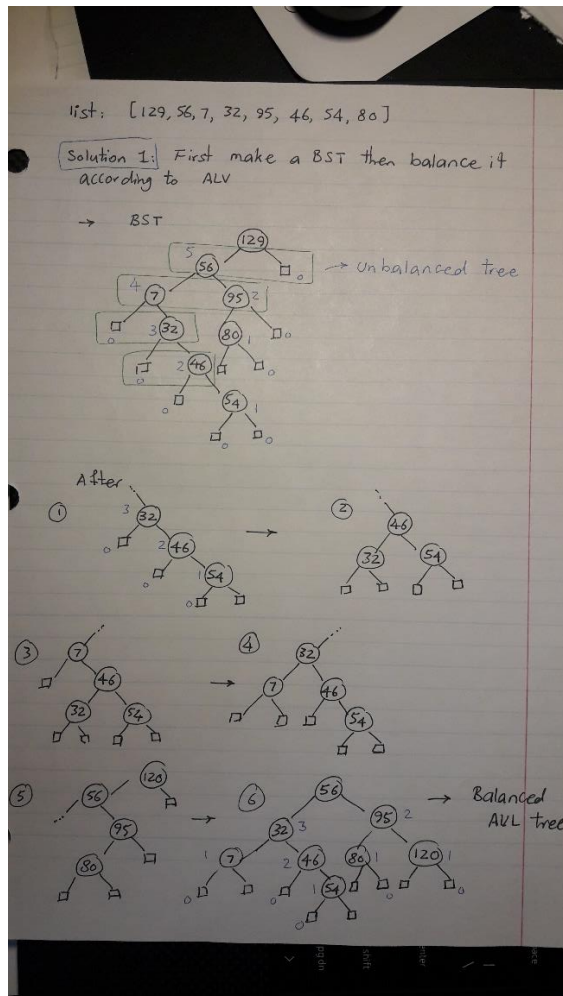 list: [129, 56, 7, 32, 95, 46, 54, 80]
Solution 1: First make a BST then balance it
according to ALV
→ BST
129
5 56 0 → Unbalanced tree
4 7 95 2
0 3 32 80 1 0
0 2 46 0 0
0 54 1
0 0
After
① 3 32 → ② 46
0 2 46 32 54
0 1 54
0
③ 7 → ④ 32
46 7 46
32 54 54
⑤ 56 120 → ⑥ 56 → Balanced
95 32 3 95 2 AVL tree
80 1 7 2 46 80 1 120 1
0 0 1 54 0 0
0